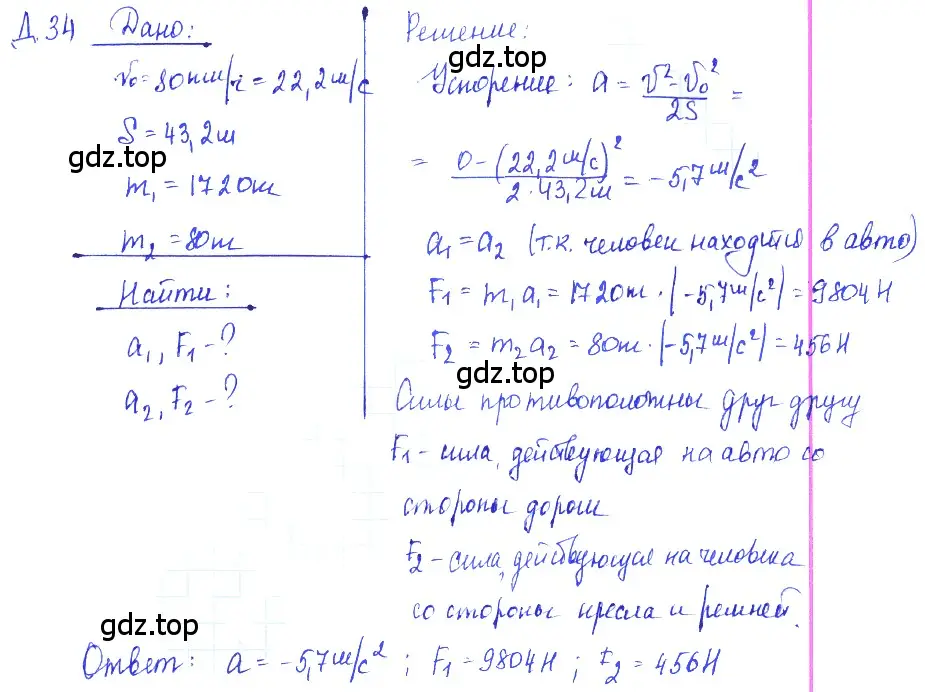 Д.34 Дано:
v₀ = 80 км/ч = 22,2 м/с
S = 43,2 м
m₁ = 1720 кг
m₂ = 80 кг
Найти:
a₁, F₁ - ?
a₂, F₂ - ?
Решение:
gdz.top
Ускорение: a = (v² - v₀²)/2S =
gdz.top
= (0 - (22,2 м/с)²)/(2 · 43,2 м) = -5,7 м/с²
a₁ = a₂ (т.к. человек находится в авто)
F₁ = m₁a₁ = 1720 кг · |-5,7 м/с²| = 9804 Н
F₂ = m₂a₂ = 80 кг · |-5,7 м/с²| = 456 Н
gdz.top
Силы противоположны друг другу
F₁ - сила, действующая на авто со
стороны дороги
F₂ - сила, действующая на человека
со стороны кресла и ремней.
gdz.top
Ответ: a = -5,7 м/с² ; F₁ = 9804 Н ; F₂ = 456 Н